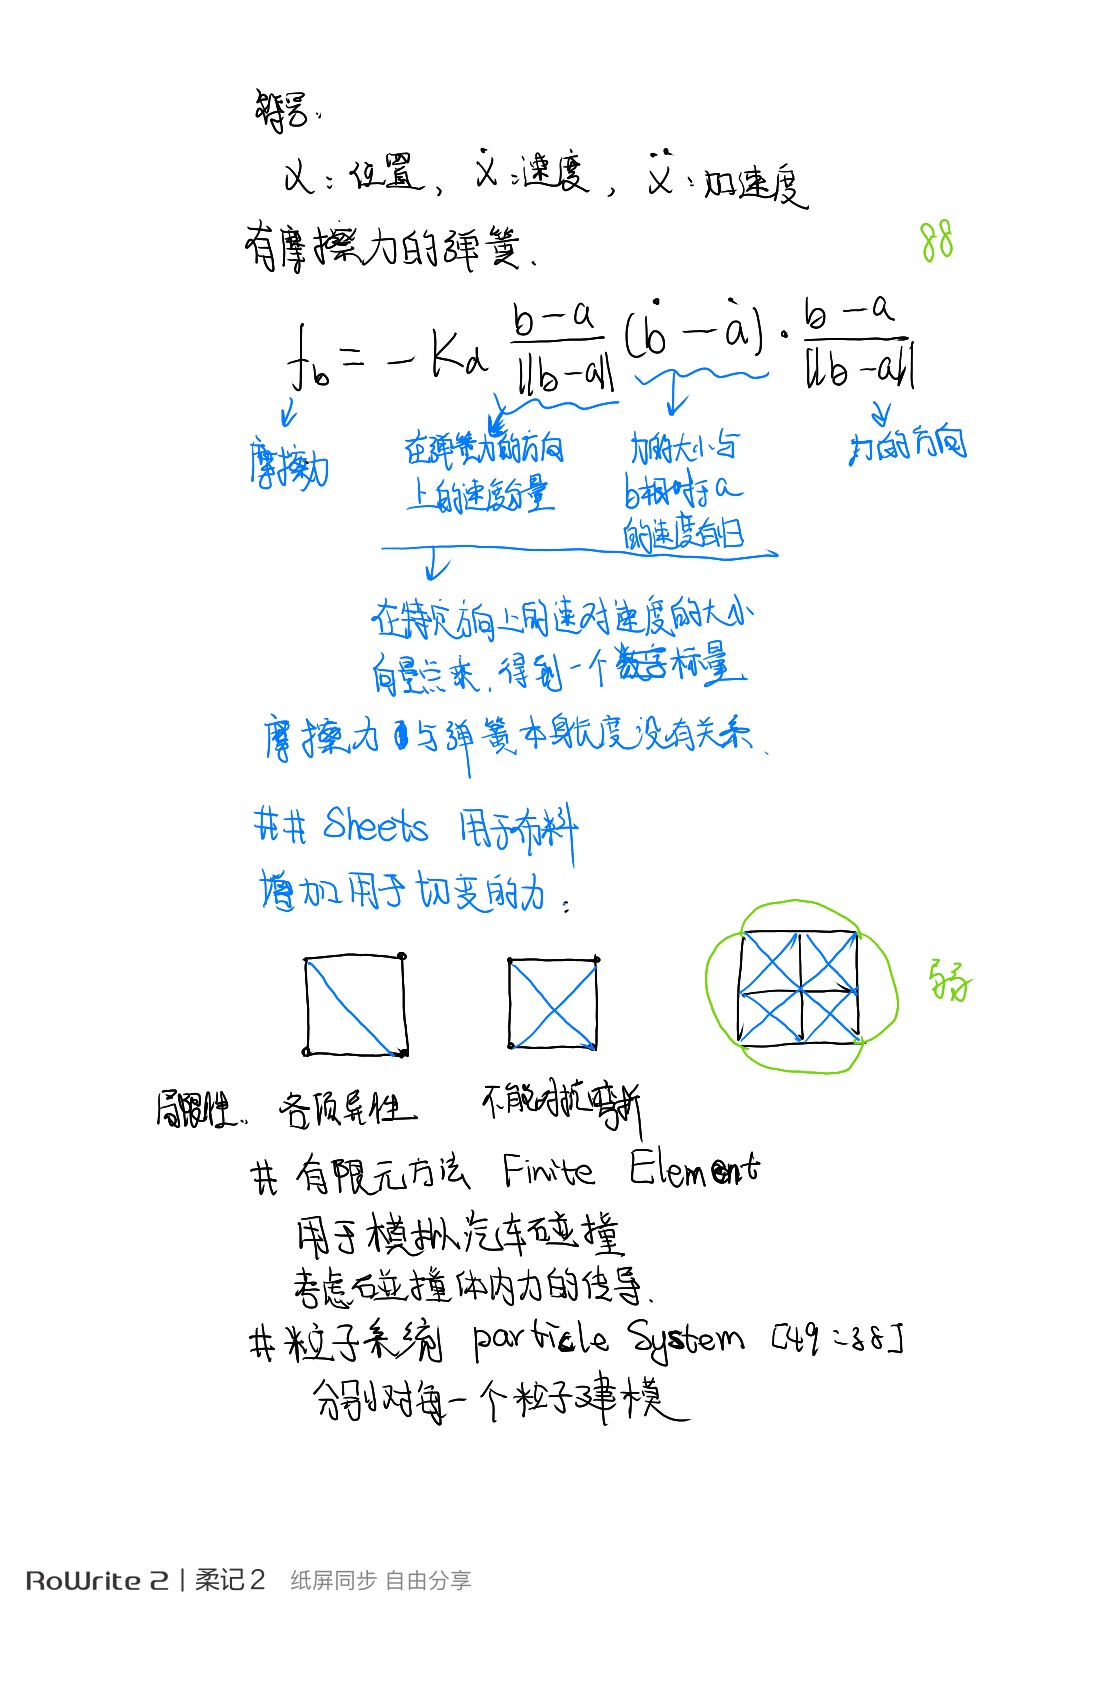 符号:
x: 位置, ẋ: 速度, ẍ: 加速度
有摩擦力的弹簧.
88
f_b = - K_d (b-a)/||b-a|| (ḃ - ȧ) · (b-a)/||b-a||
摩擦力
在弹簧力的方向
上的速度分量
力的大小与
b相对于a
的速度有归
力的方向
在特定方向上的速对速度的大小
向量点乘, 得到一个数字标量
摩擦力与弹簧本身长度没有关系.
## Sheets 用于布料
增加用于切变的力:
弱
局限性: 各项异性 不能对抗弯折
# 有限元方法 Finite Element
用于模拟汽车碰撞
考虑碰撞体内力的传导.
# 粒子系统 particle System [49:38]
分别对每一个粒子建模
RoWrite 2 | 柔记 2 纸屏同步 自由分享